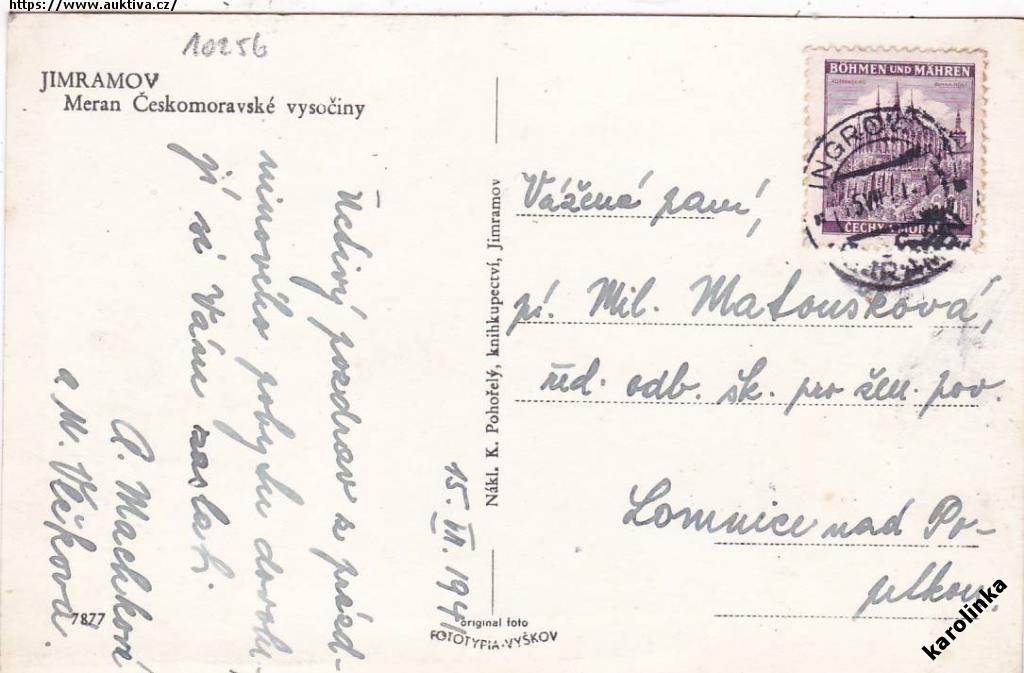 https://www.auktiva.cz/
10256
JIMRAMOV
Meran Českomoravské vysočiny
Uctivý pozdrav z prázd-
ninového pobytu dovolu-
jí si Vám zaslat.
A. Machková
a M. Vlčková.
15. VII. 1941
Nákl. K. Pohořelý, knihkupectví, Jimramov
7877
original foto
FOTOTYPIA-VYŠKOV
BÖHMEN UND MÄHREN
ČECHY A MORAVA
Vážená paní,
pí. Mil. Matousková,
řed. odb. šk. pro žen. pov.
Lomnice nad Po-
pelkou.
karolinka